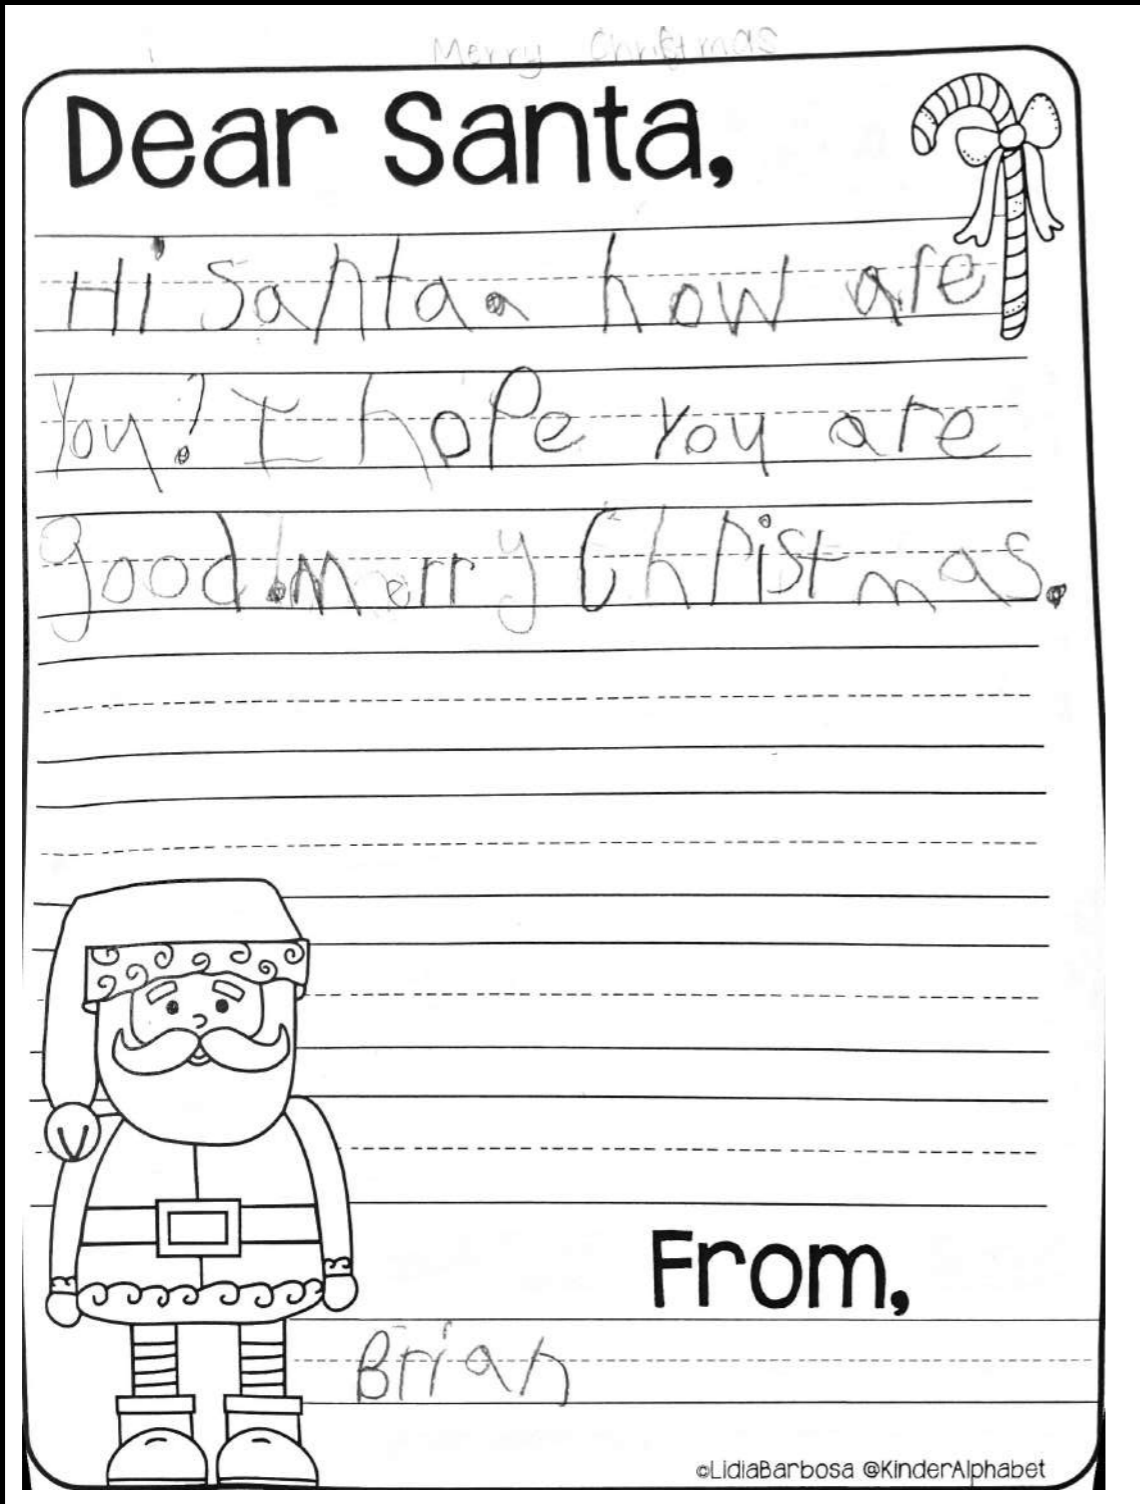 Merry Christmas
Dear Santa,
Hi Santa. how are
you? I hope you are
good. merry Christmas.
From,
Brian
©LidiaBarbosa @KinderAlphabet